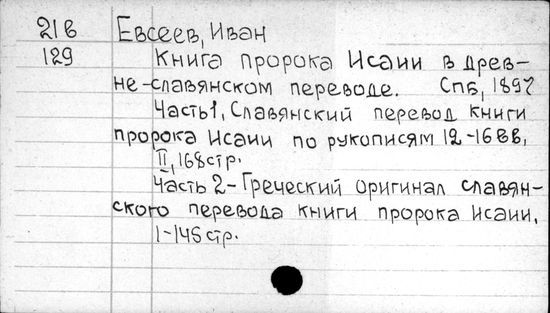 21 в Евсеев, Иван
129 Книга пророка Исаии в древ-
не-славянском переводе. Спб, 1897
Часть 1, Славянский перевод книги
пророка Исаии по рукописям 12-16 вв,
II, 168 стр.
Часть 2 - Греческий оригинал славян-
ского перевода книги пророка Исаии.
1-145 стр.